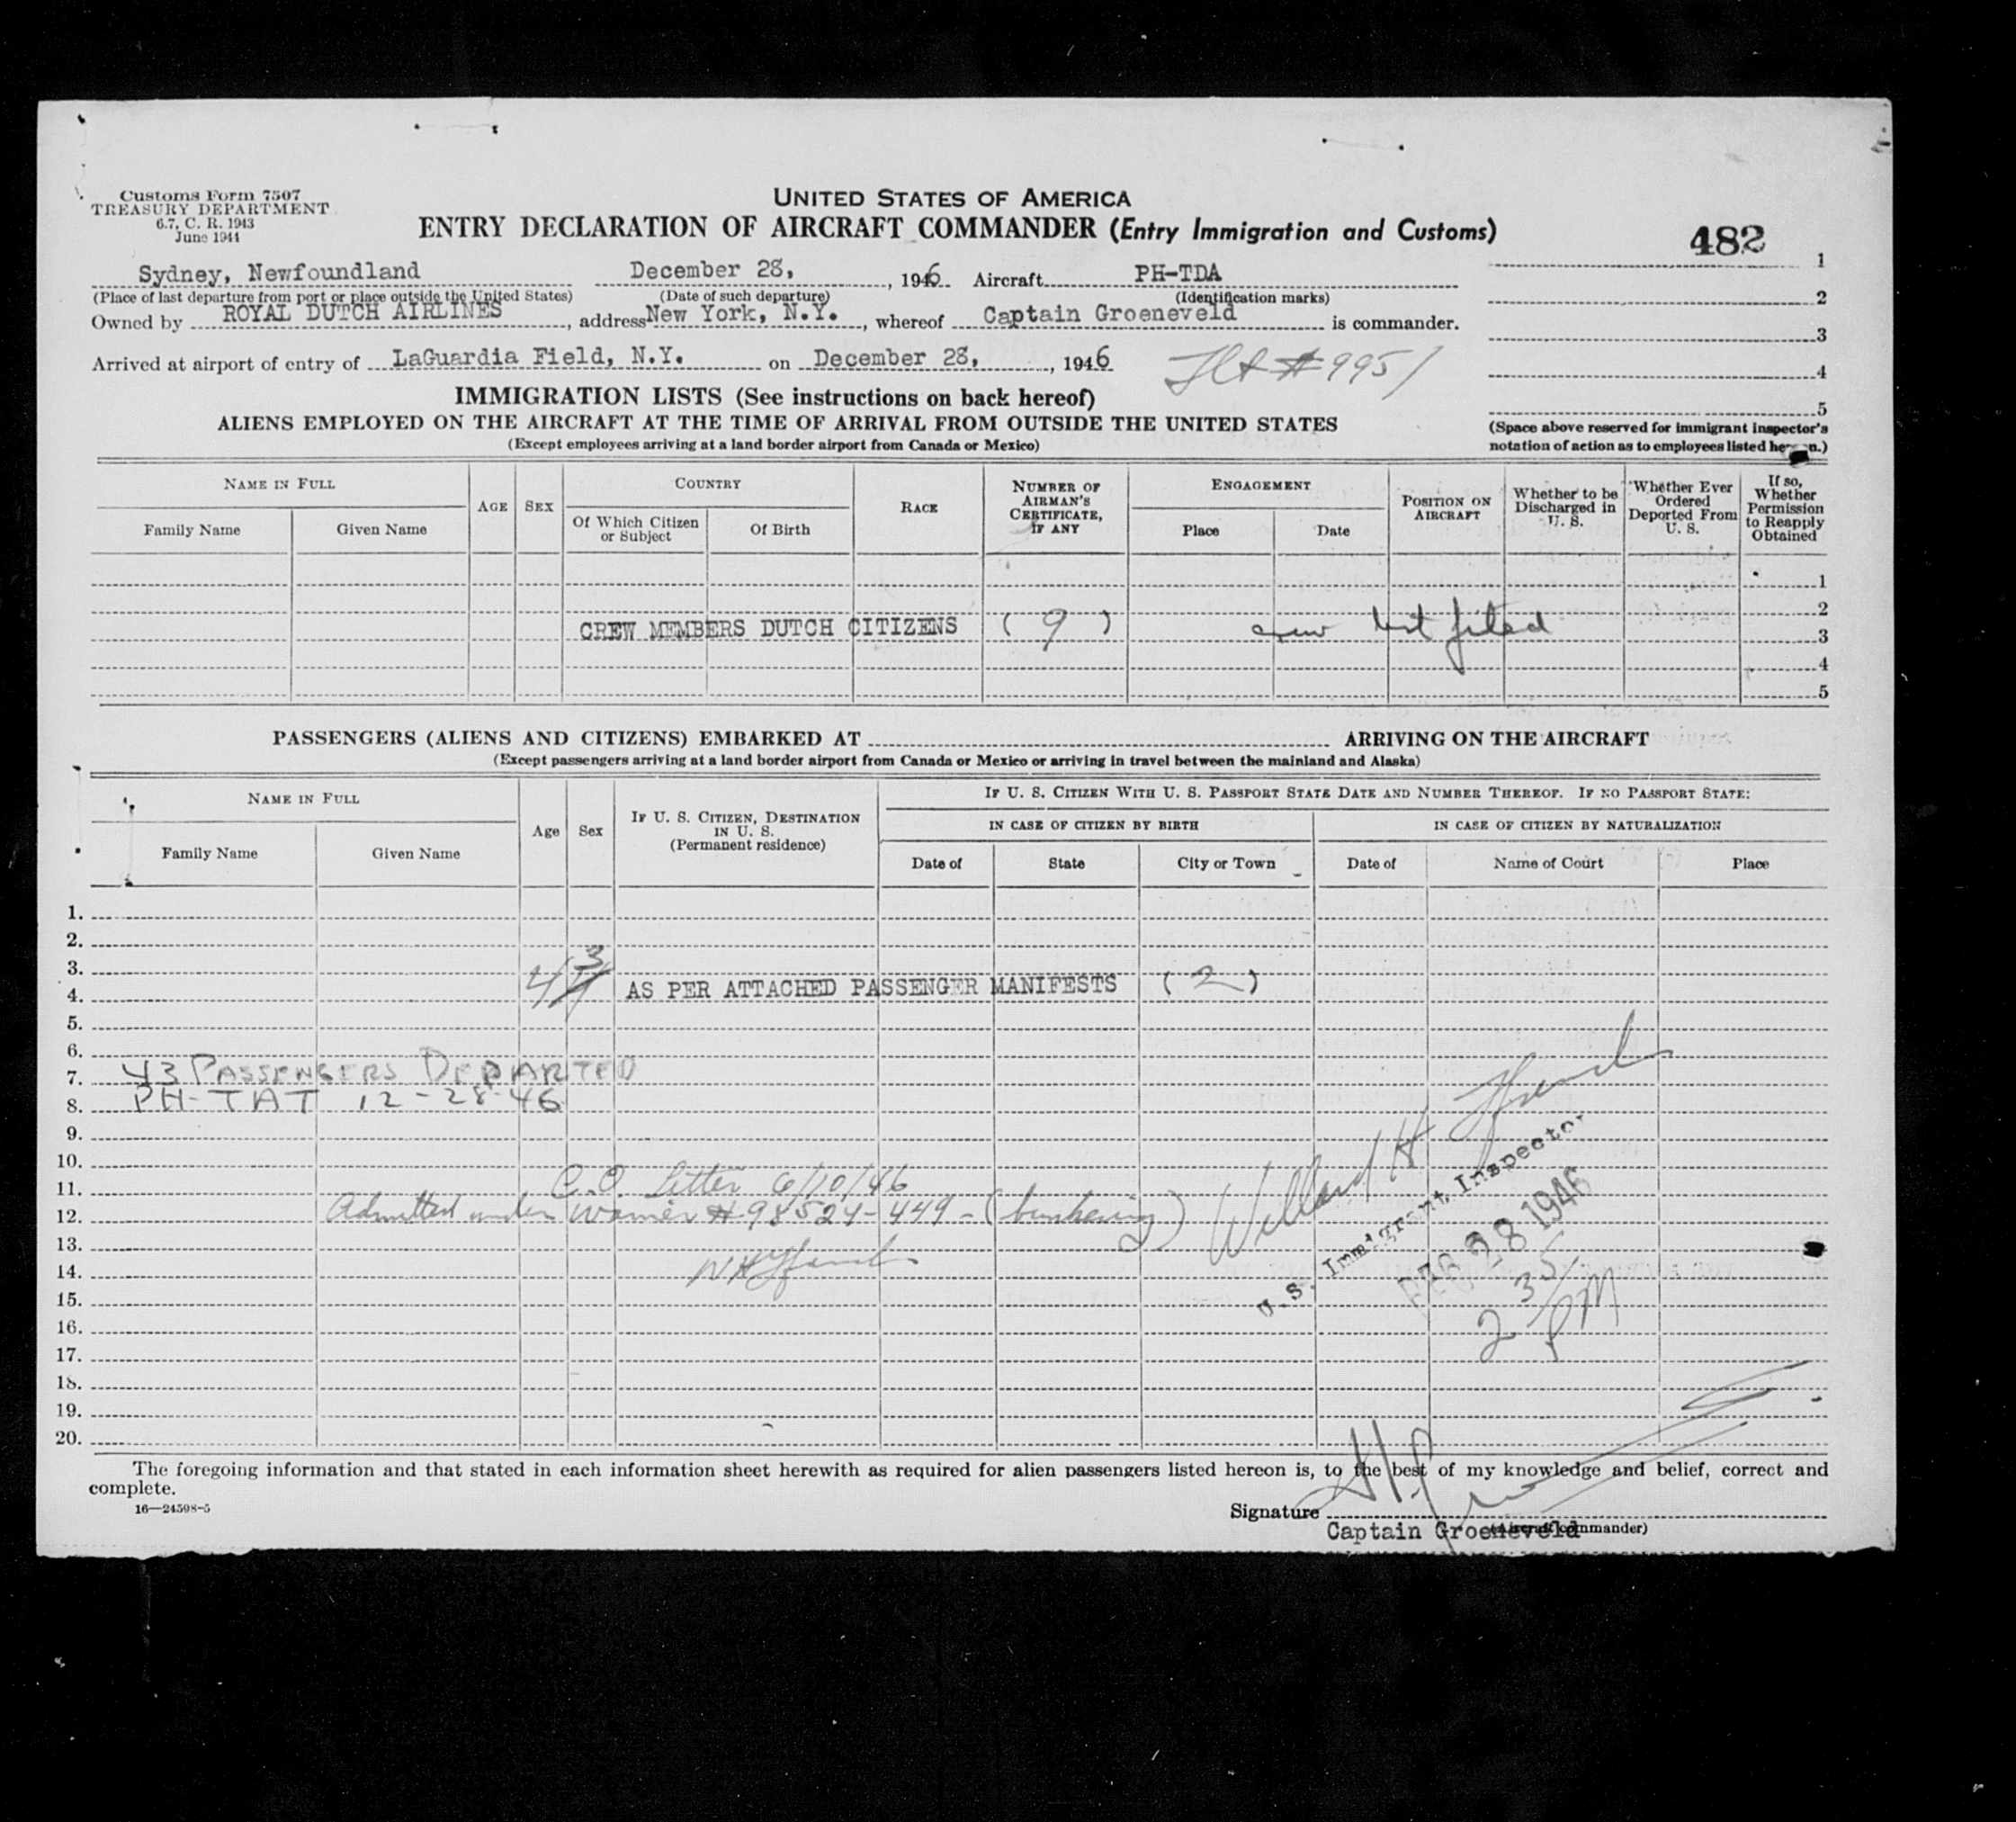 Customs Form 7507
TREASURY DEPARTMENT
6.7, C. R. 1943
June 1944
UNITED STATES OF AMERICA
ENTRY DECLARATION OF AIRCRAFT COMMANDER (Entry Immigration and Customs)
482
Sydney, Newfoundland December 28, 1946 Aircraft PH-TDA
(Place of last departure from port or place outside the United States) (Date of such departure) (Identification marks)
Owned by ROYAL DUTCH AIRLINES, address New York, N.Y., whereof Captain Groeneveld is commander.
Arrived at airport of entry of LaGuardia Field, N.Y. on December 28, 1946
Flt # 9951
1
2
3
4
5
(Space above reserved for immigrant inspector's
notation of action as to employees listed
IMMIGRATION LISTS (See instructions on back hereof)
ALIENS EMPLOYED ON THE AIRCRAFT AT THE TIME OF ARRIVAL FROM OUTSIDE THE UNITED STATES
(Except employees arriving at a land border airport from Canada or Mexico)
NAME IN FULL
Family Name Given Name
AGE
SEX
COUNTRY
Of Which Citizen or Subject Of Birth
RACE
NUMBER OF AIRMAN'S CERTIFICATE, IF ANY
ENGAGEMENT
Place Date
POSITION ON AIRCRAFT
Whether to be Discharged in U. S.
Whether Ever Ordered Deported From U. S.
If so, Whether Permission to Reapply Obtained
1
2
CREW MEMBERS DUTCH CITIZENS ( 9 ) crew list filed 3
4
5
PASSENGERS (ALIENS AND CITIZENS) EMBARKED AT ARRIVING ON THE AIRCRAFT
(Except passengers arriving at a land border airport from Canada or Mexico or arriving in travel between the mainland and Alaska)
NAME IN FULL
Family Name Given Name
Age
Sex
IF U. S. CITIZEN, DESTINATION IN U. S. (Permanent residence)
IF U. S. CITIZEN WITH U. S. PASSPORT STATE DATE AND NUMBER THEREOF. IF NO PASSPORT STATE:
IN CASE OF CITIZEN BY BIRTH IN CASE OF CITIZEN BY NATURALIZATION
Date of State City or Town Date of Name of Court Place
1.
2.
3.
4. 43 AS PER ATTACHED PASSENGER MANIFESTS (2)
5.
6.
7. 43 PASSENGERS DEPARTED
8. PH-TAT 12-28-46
9.
10.
11. C.O. Letter 6/10/46
12. Admitted under Waiver # 98524-449 - (bunkering)
13.
14.
15.
16.
17.
18.
19.
20.
Willard H
U.S. Immigrant Inspector
DEC 28 1946
2 35/PM
The foregoing information and that stated in each information sheet herewith as required for alien passengers listed hereon is, to the best of my knowledge and belief, correct and
complete.
16—24598-5
Signature
Captain Groeneveld
(Aircraft commander)